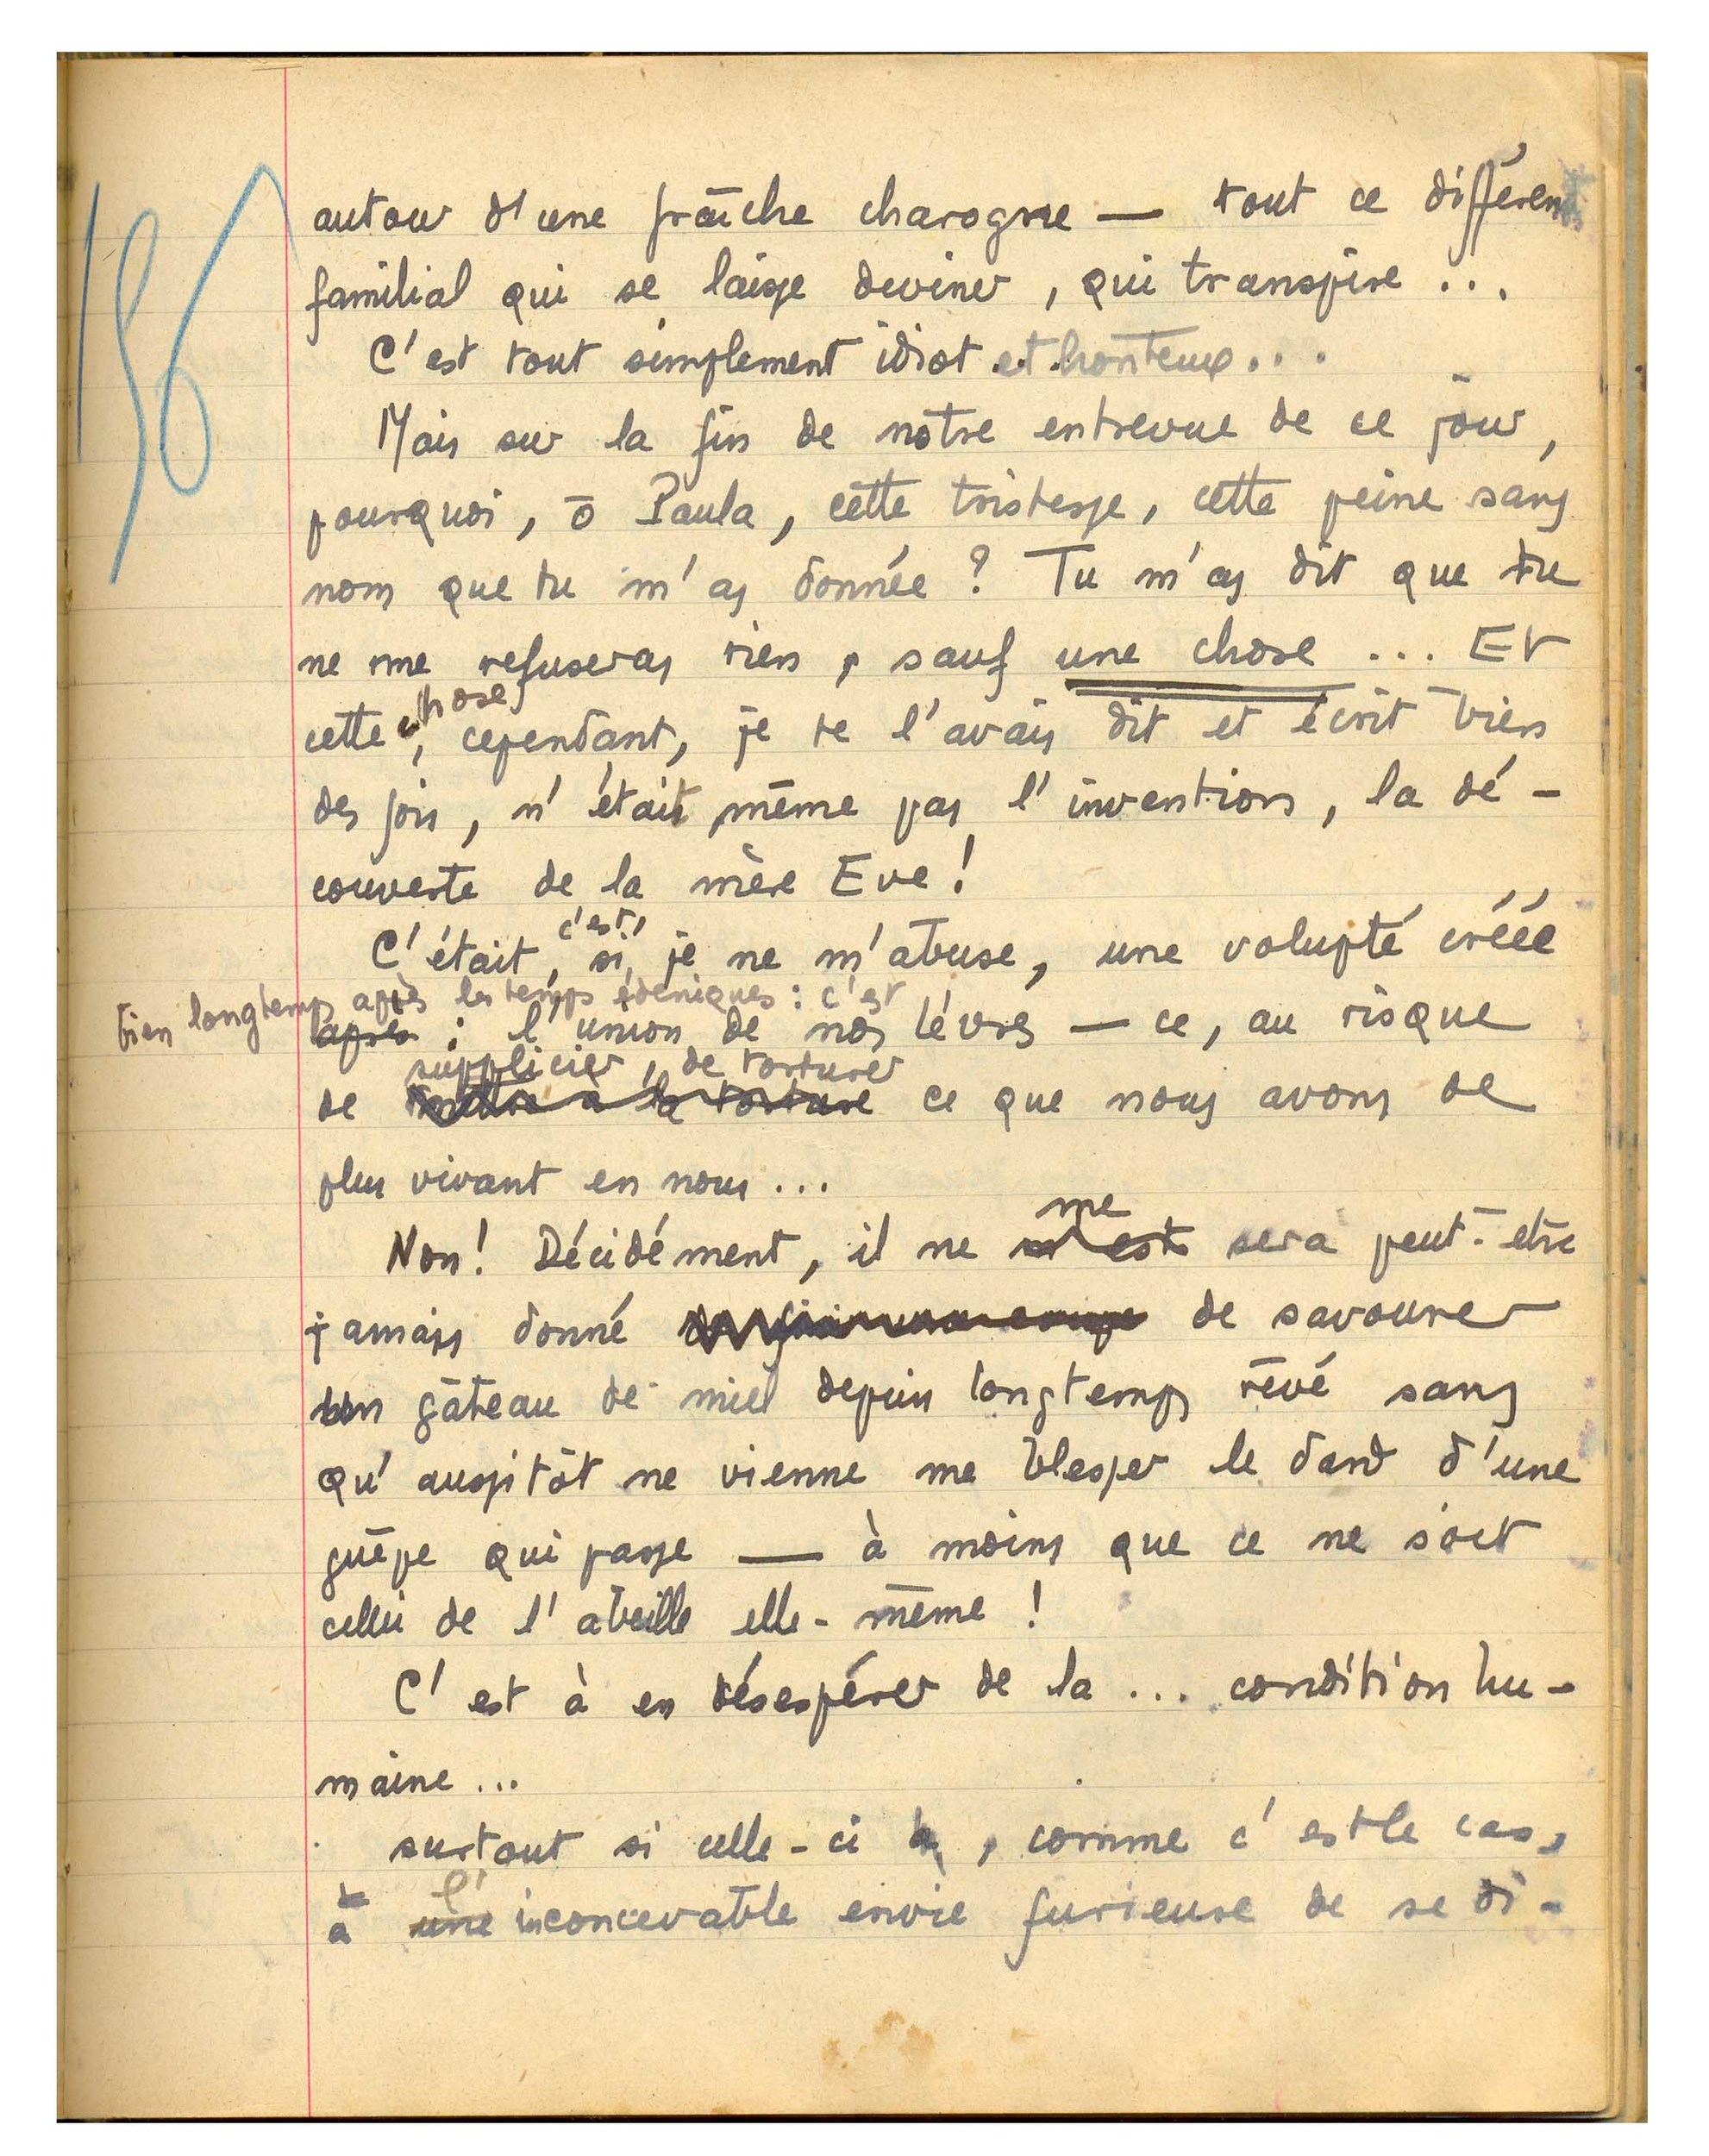 156
autour d'une fraîche charogne — tout ce différend
familial qui se laisse deviner, qui transpire ...
C'est tout simplement idiot et honteux...
Mais sur la fin de notre entrevue de ce jour,
pourquoi, ô Paula, cette tristesse, cette peine sans
nom que tu m'as donnée ? Tu m'as dit que tu
ne me refuseras rien, sauf une chose ... Et
chose,
cette, cependant, je te l'avais dit et écrit bien
des fois, n'était même pas l'invention, la dé-
couverte de la mère Eve !
c'est,
C'était, si je ne m'abuse, une volupté créée
bien longtemps après les temps édéniques : c'est
après : l'union de nos lèvres — ce, au risque
supplicier, de torturer
de mettre à la torture ce que nous avons de
plus vivant en nous ...
me
Non ! Décidément, il ne m'est sera peut-être
jamais donné de savourer
un gâteau de miel depuis longtemps rêvé sans
qu'aussitôt ne vienne me blesser le dard d'une
guêpe qui passe — à moins que ce ne soit
celui de l'abeille elle-même !
C'est à en désespérer de la ... condition hu-
maine ...
surtout si celle-ci a, comme c'est le cas,
l'
à une inconcevable envie furieuse de se di-